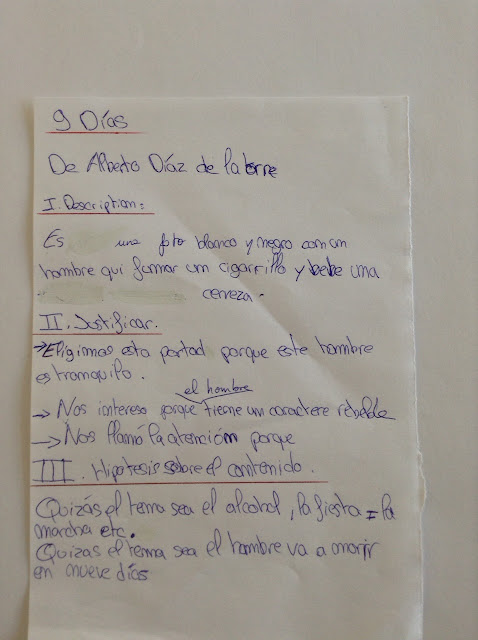 9 Días
De Alberto Díaz de la torre
I. Description:
Es una foto blanco y negro con un
hombre qui fumar un cigarrillo y bebe una
cerveza.
II. Justificar.
→ Eligimos esta portad porque este hombre
es tranquilo.
el hombre
→ Nos intereso porque tiene un caractere rebelde
→ Nos llamó la atención porque
III. Hipotesis sobre el contenido.
Quizás el tema sea el alcohol, la fiesta = la
marcha etc.
Quizas el tema sea el hombre va a morir
en nueve días